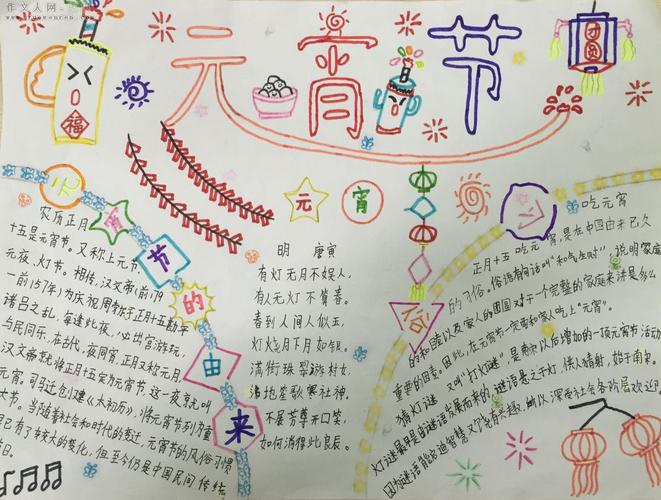 作文人网
元宵节
福
团圆
元宵节的由来
农历正月
十五是元宵节。又称上元节
元夜、灯节。相传,汉文帝(前179
一前157年)为庆祝周勃于正月十五勘平
诸吕之乱,每逢此夜,必出宫游玩,
与民同乐,在古代,夜同宵,正月又称元月,
汉文帝就将正月十五定为元宵节,这一夜就叫
元宵。司马迁创建《太初历》,将元宵节列为重
大节。当随着社会和时代的变迁,元宵节的风俗习惯
早已有了较大的变化,但至今仍是中国民间传统
节日。
元宵
明 唐寅
有灯无月不娱人,
有人无灯不算春。
春到人间人似玉,
灯烧月下月如银。
满街珠翠游村女,
沸地笙歌赛社神。
不展芳尊开口笑,
如何消得此良辰。
吃元宵
正月十五吃元宵,是在中国由来已久
的习俗。俗语有句话叫"和气生财",说明家庭
的和睦以及家人的团圆对于一个完整的家庭来讲是多么
重要的因素。因此,在元宵节一定要和家人吃上"元宵"。
猜灯谜 又叫"打灯谜"是
以后增加的一项元宵节活动
供人猜射,始于南宋。
灯谜最早是由谜语发展而来的
因为谜语能启迪智慧又饶有兴趣,所以深受社会各阶层欢迎